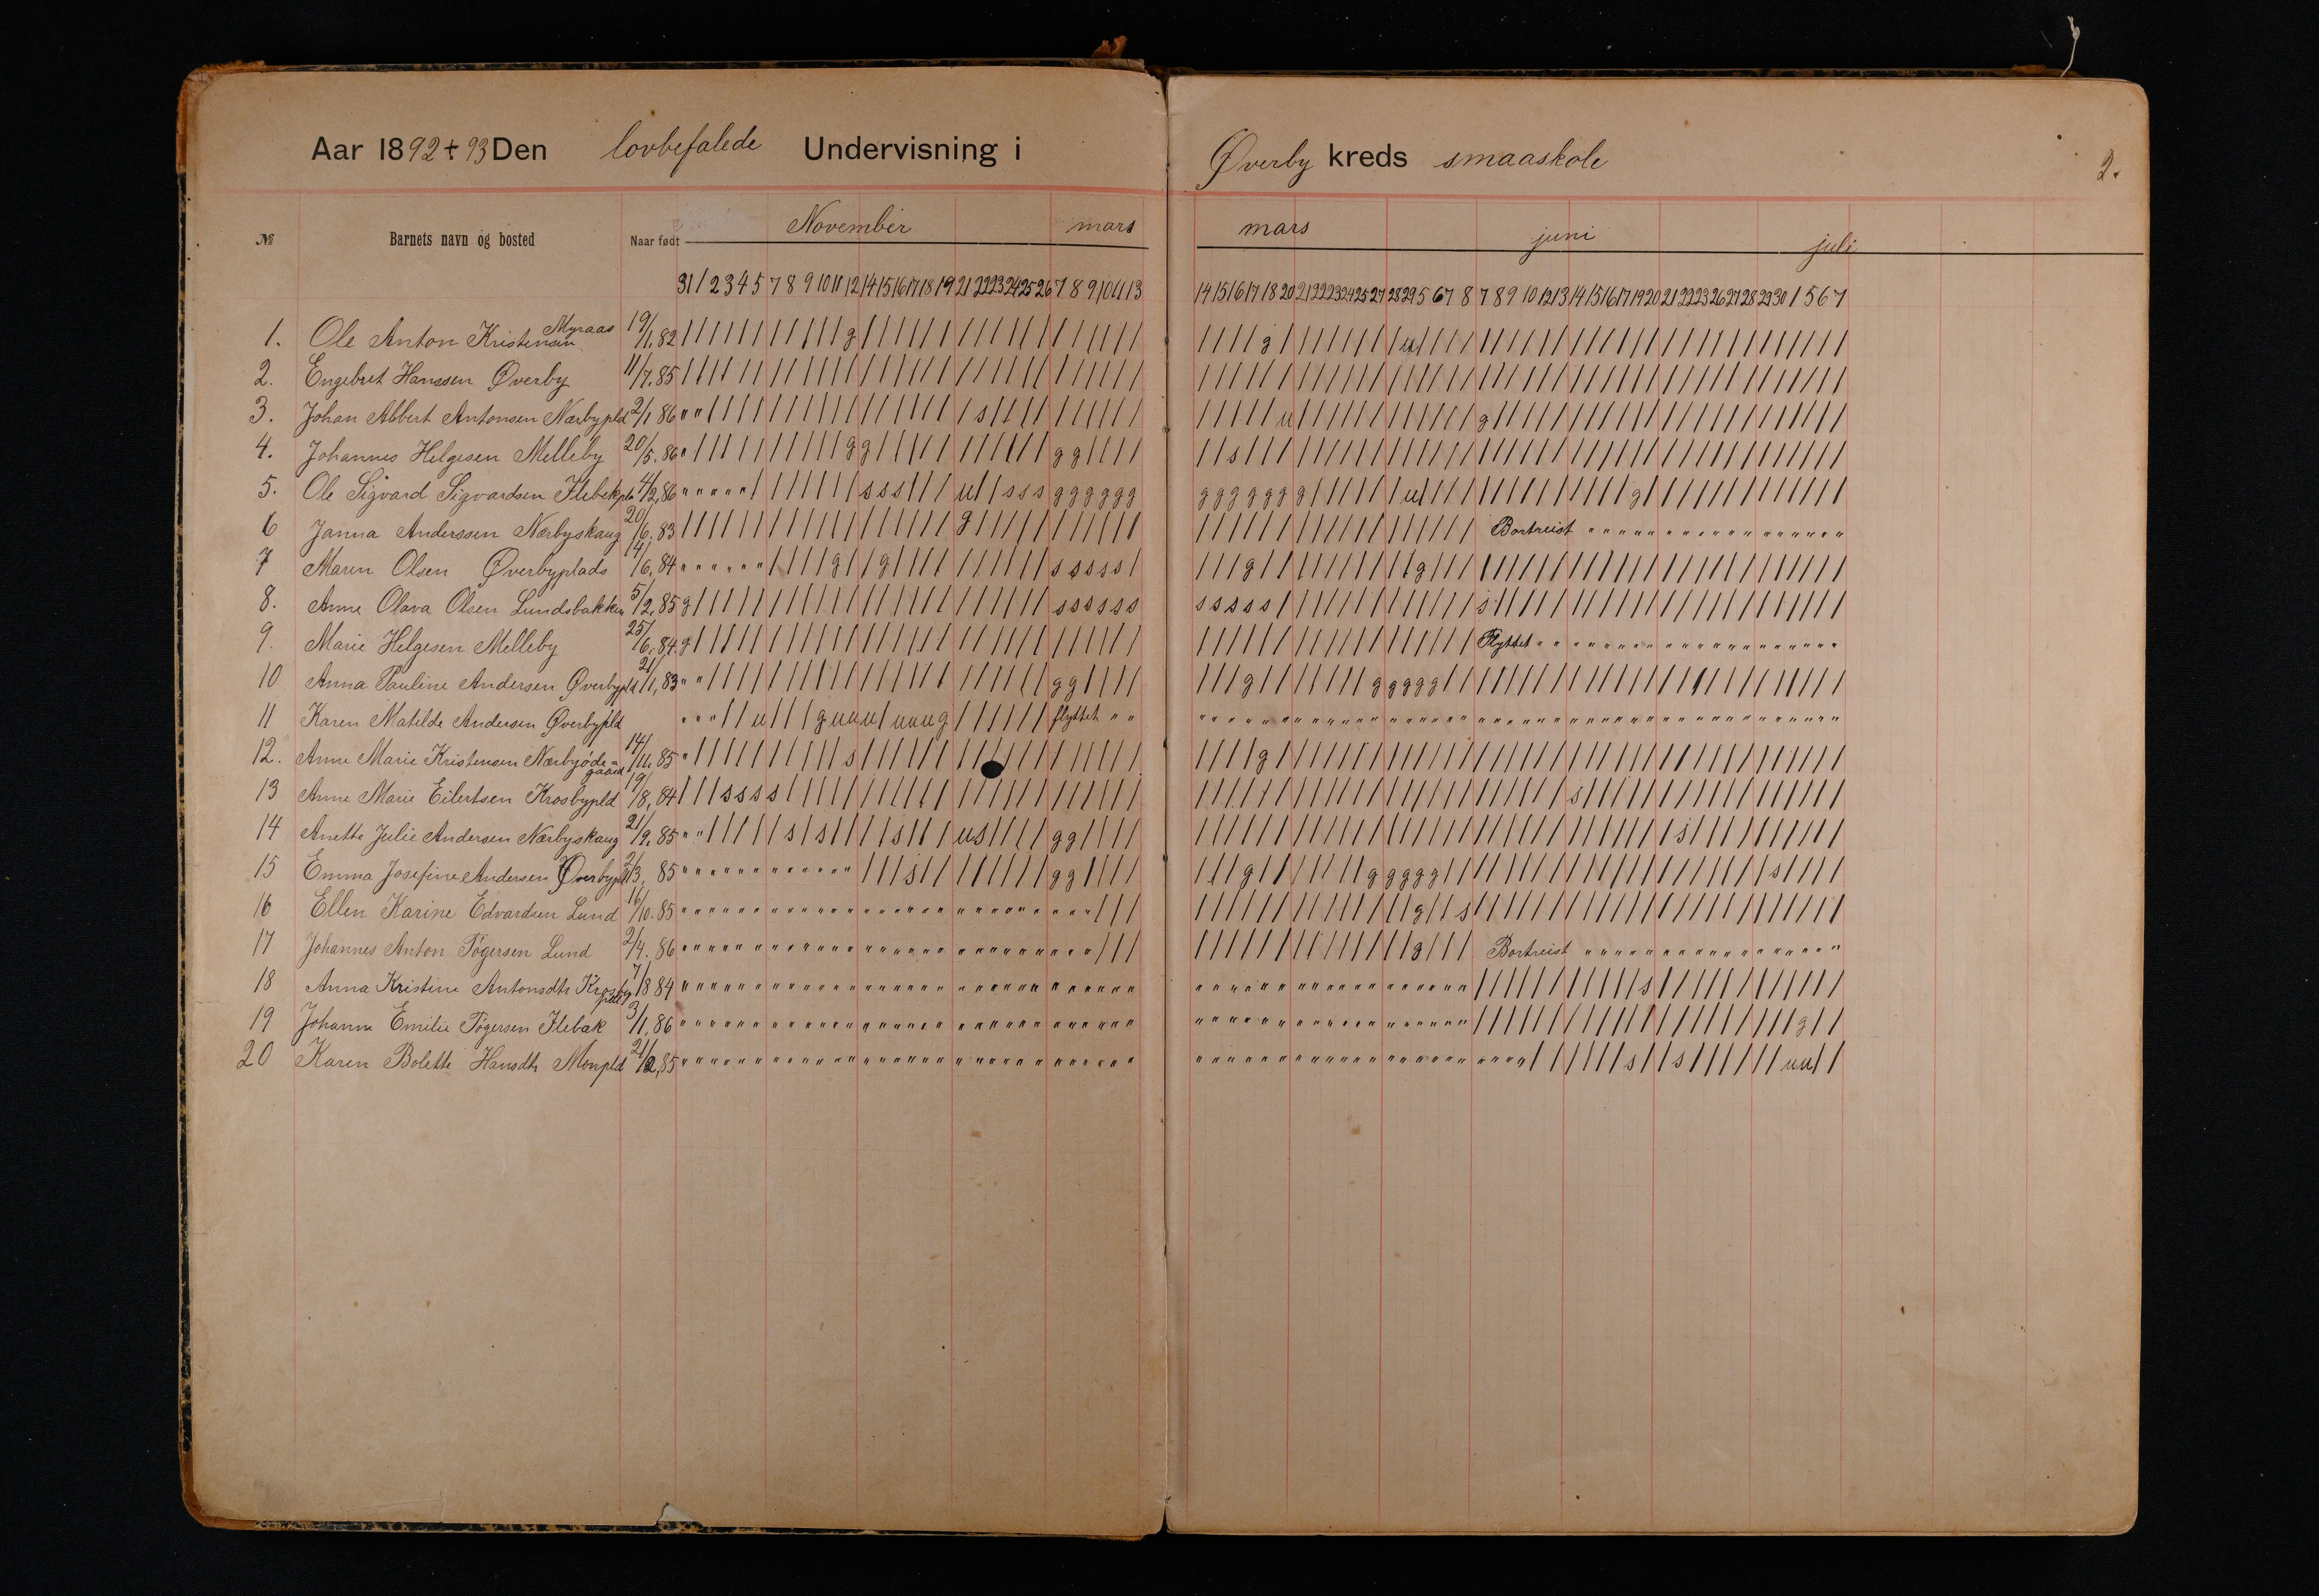 Aar 1892+93 Den lovbefalede Undervisning i Øverby kreds smaaskole 2.
№ Barnets navn og bosted Naar født November mars mars juni juli
31 1 2 3 4 5 7 8 9 10 11 12 14 15 16 17 18 19 21 22 23 24 25 26 7 8 9 10 11 13 14 15 16 17 18 20 21 22 23 24 25 27 28 29 5 6 7 8 7 8 9 10 12 13 14 15 16 17 19 20 21 22 23 26 27 28 29 30 1 5 6 7
1. Ole Anton Kristensen Myraas 19/1.82
2. Engebret Hanssen Øverby 11/7.85
3. Johan Albert Antonsen Nærbypld 2/1 86
4. Johannes Helgesen Melleby 20/5.86
5. Ole Sigvard Sigvardsen Flebekpla 4/2,86
6 Janna Anderssen Nærbyskaug 20/6.83 Bortreist
7 Maren Olsen Øverbyplads 14/6.84
8. Anne Olava Olsen Lundsbakken 5/2,85
9. Marie Helgesen Melleby 25/6.84. Flyttet
10 Anna Pauline Andersen Øverbypld 21/1,83
11 Karen Matilde Andersen Øverbypld flyttet
12. Anne Marie Kristensen Nærbyøde-gaard 14/11.85
13 Anne Marie Eilertsen Krosbypld 19/8,84
14 Anette Julie Andersen Nærbyskaug 21/9.85
15 Emma Josefine Andersen Øverbypld 2/3, 85
16 Ellen Karine Edvardsen Lund 16/10.85
17 Johannes Anton Tøgersen Lund 2/4. 86 Bortreist
18 Anna Kristine Antonsdtr Krosby pld 7/8 84
19 Johanne Emilie Tøgersen Flebak 3/1,86
20 Karen Bolette Hansdtr Monpld 21/2,85